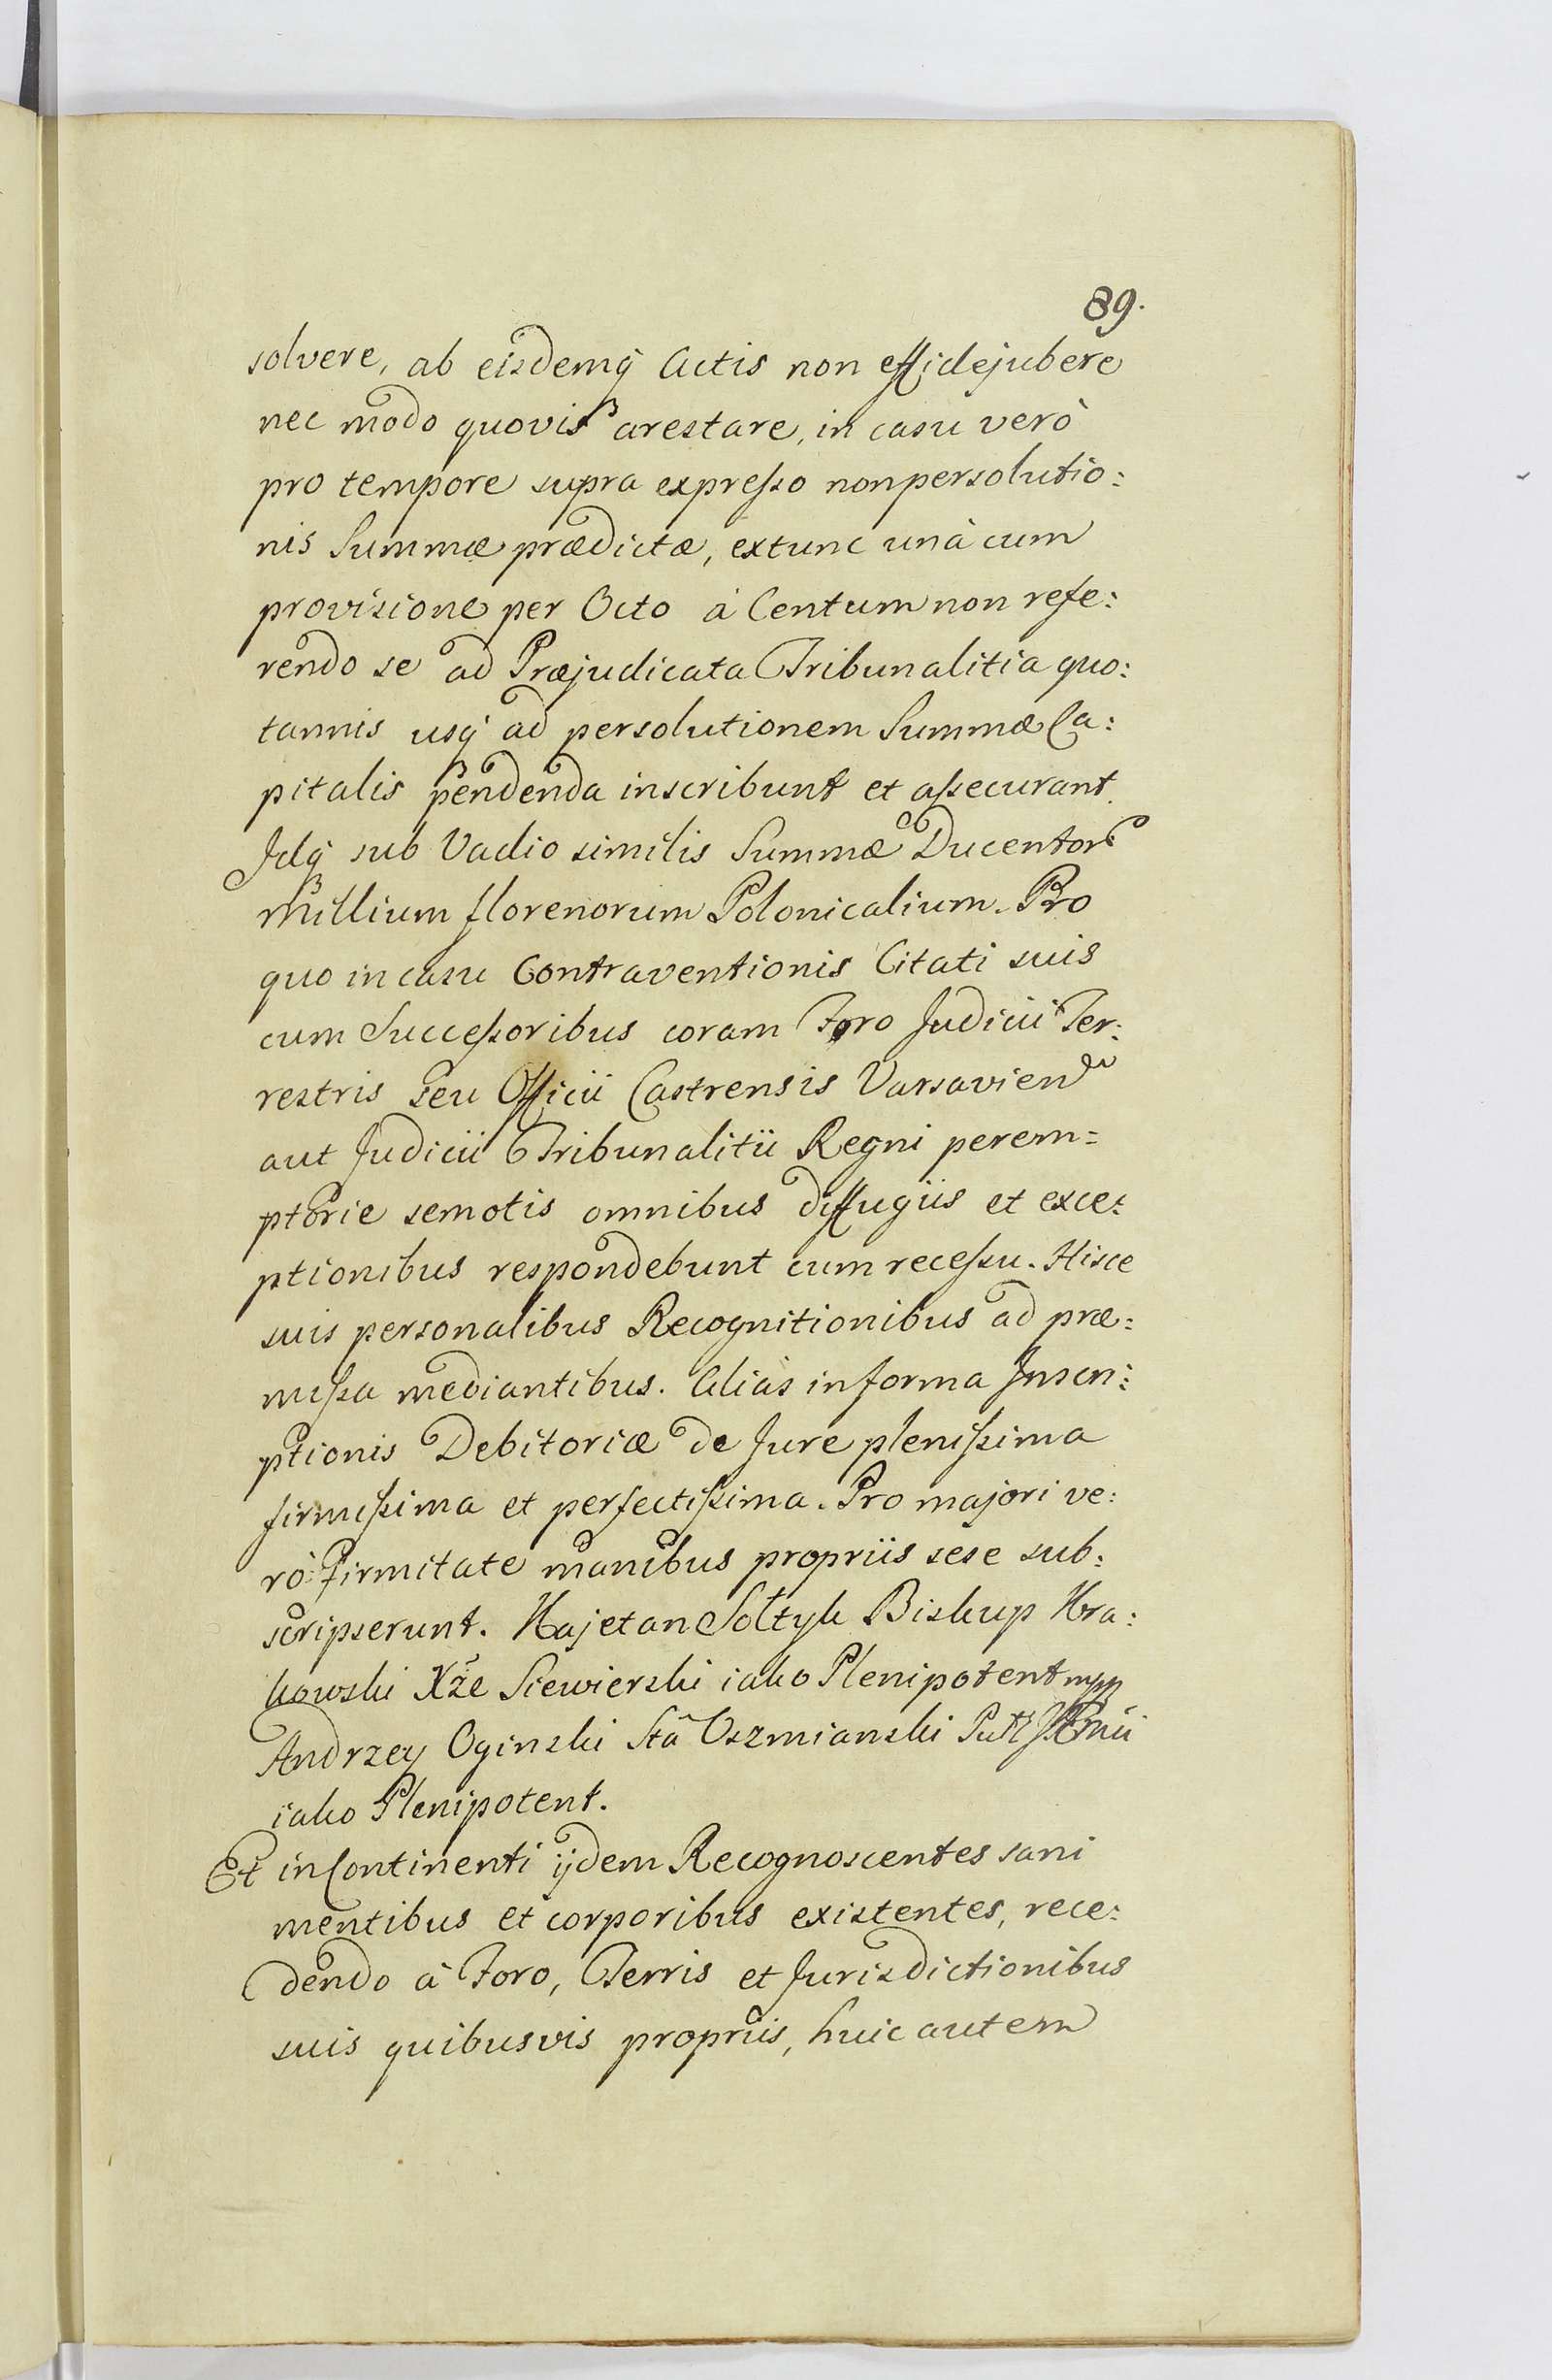 89.
solvere, ab eisdemq́ Actis non effidejubere
nec modo quovis arestare, in casu verò
pro tempore supra expresso nonpersolutio:
nis Summæ prædictæ, extunc unà cum
provisione per Octo à Centum non refe:
rendo se ad Præjudicata Tribunalitia quo:
tannis usq́ ad persolutionem Summæ Ca:
pitalis pendenda inscribunt et assecurant.
Idq́ sub Vadio similis Summæ Ducentor
Millium florenorum Polonicalium. Pro
quo in casu Contraventionis Citati suis
cum Successoribus coram Foro Judicii Ter:
restris seu Officii Castrensis Varsavien
aut Judicii Tribunalitii Regni perem=
ptorie semotis omnibus diffugiis et exce:
ptionibus respondebunt cum recessu. Hisce
suis personalibus Recognitionibus ad præ:
missa mediantibus. Aliàs in forma Inscri:
ptionis Debitoriæ de Jure plenissima
firmissima et perfectissima. Pro majori ve:
rò firmitate manibus propriis sese sub:
scripserunt. Kajetan Sołtyk Biskup Kra:
kowski Xże Siewierski iako Plenipotent mpp
Andrzey Oginski Sta Oszmianski
iako Plenipotent.
Et in Continenti ijdem Recognoscentes sani
mentibus et corporibus existentes, rece:
dendo à Foro, Terris et Jurisdictionibus
suis quibusvis propriis, huic autem